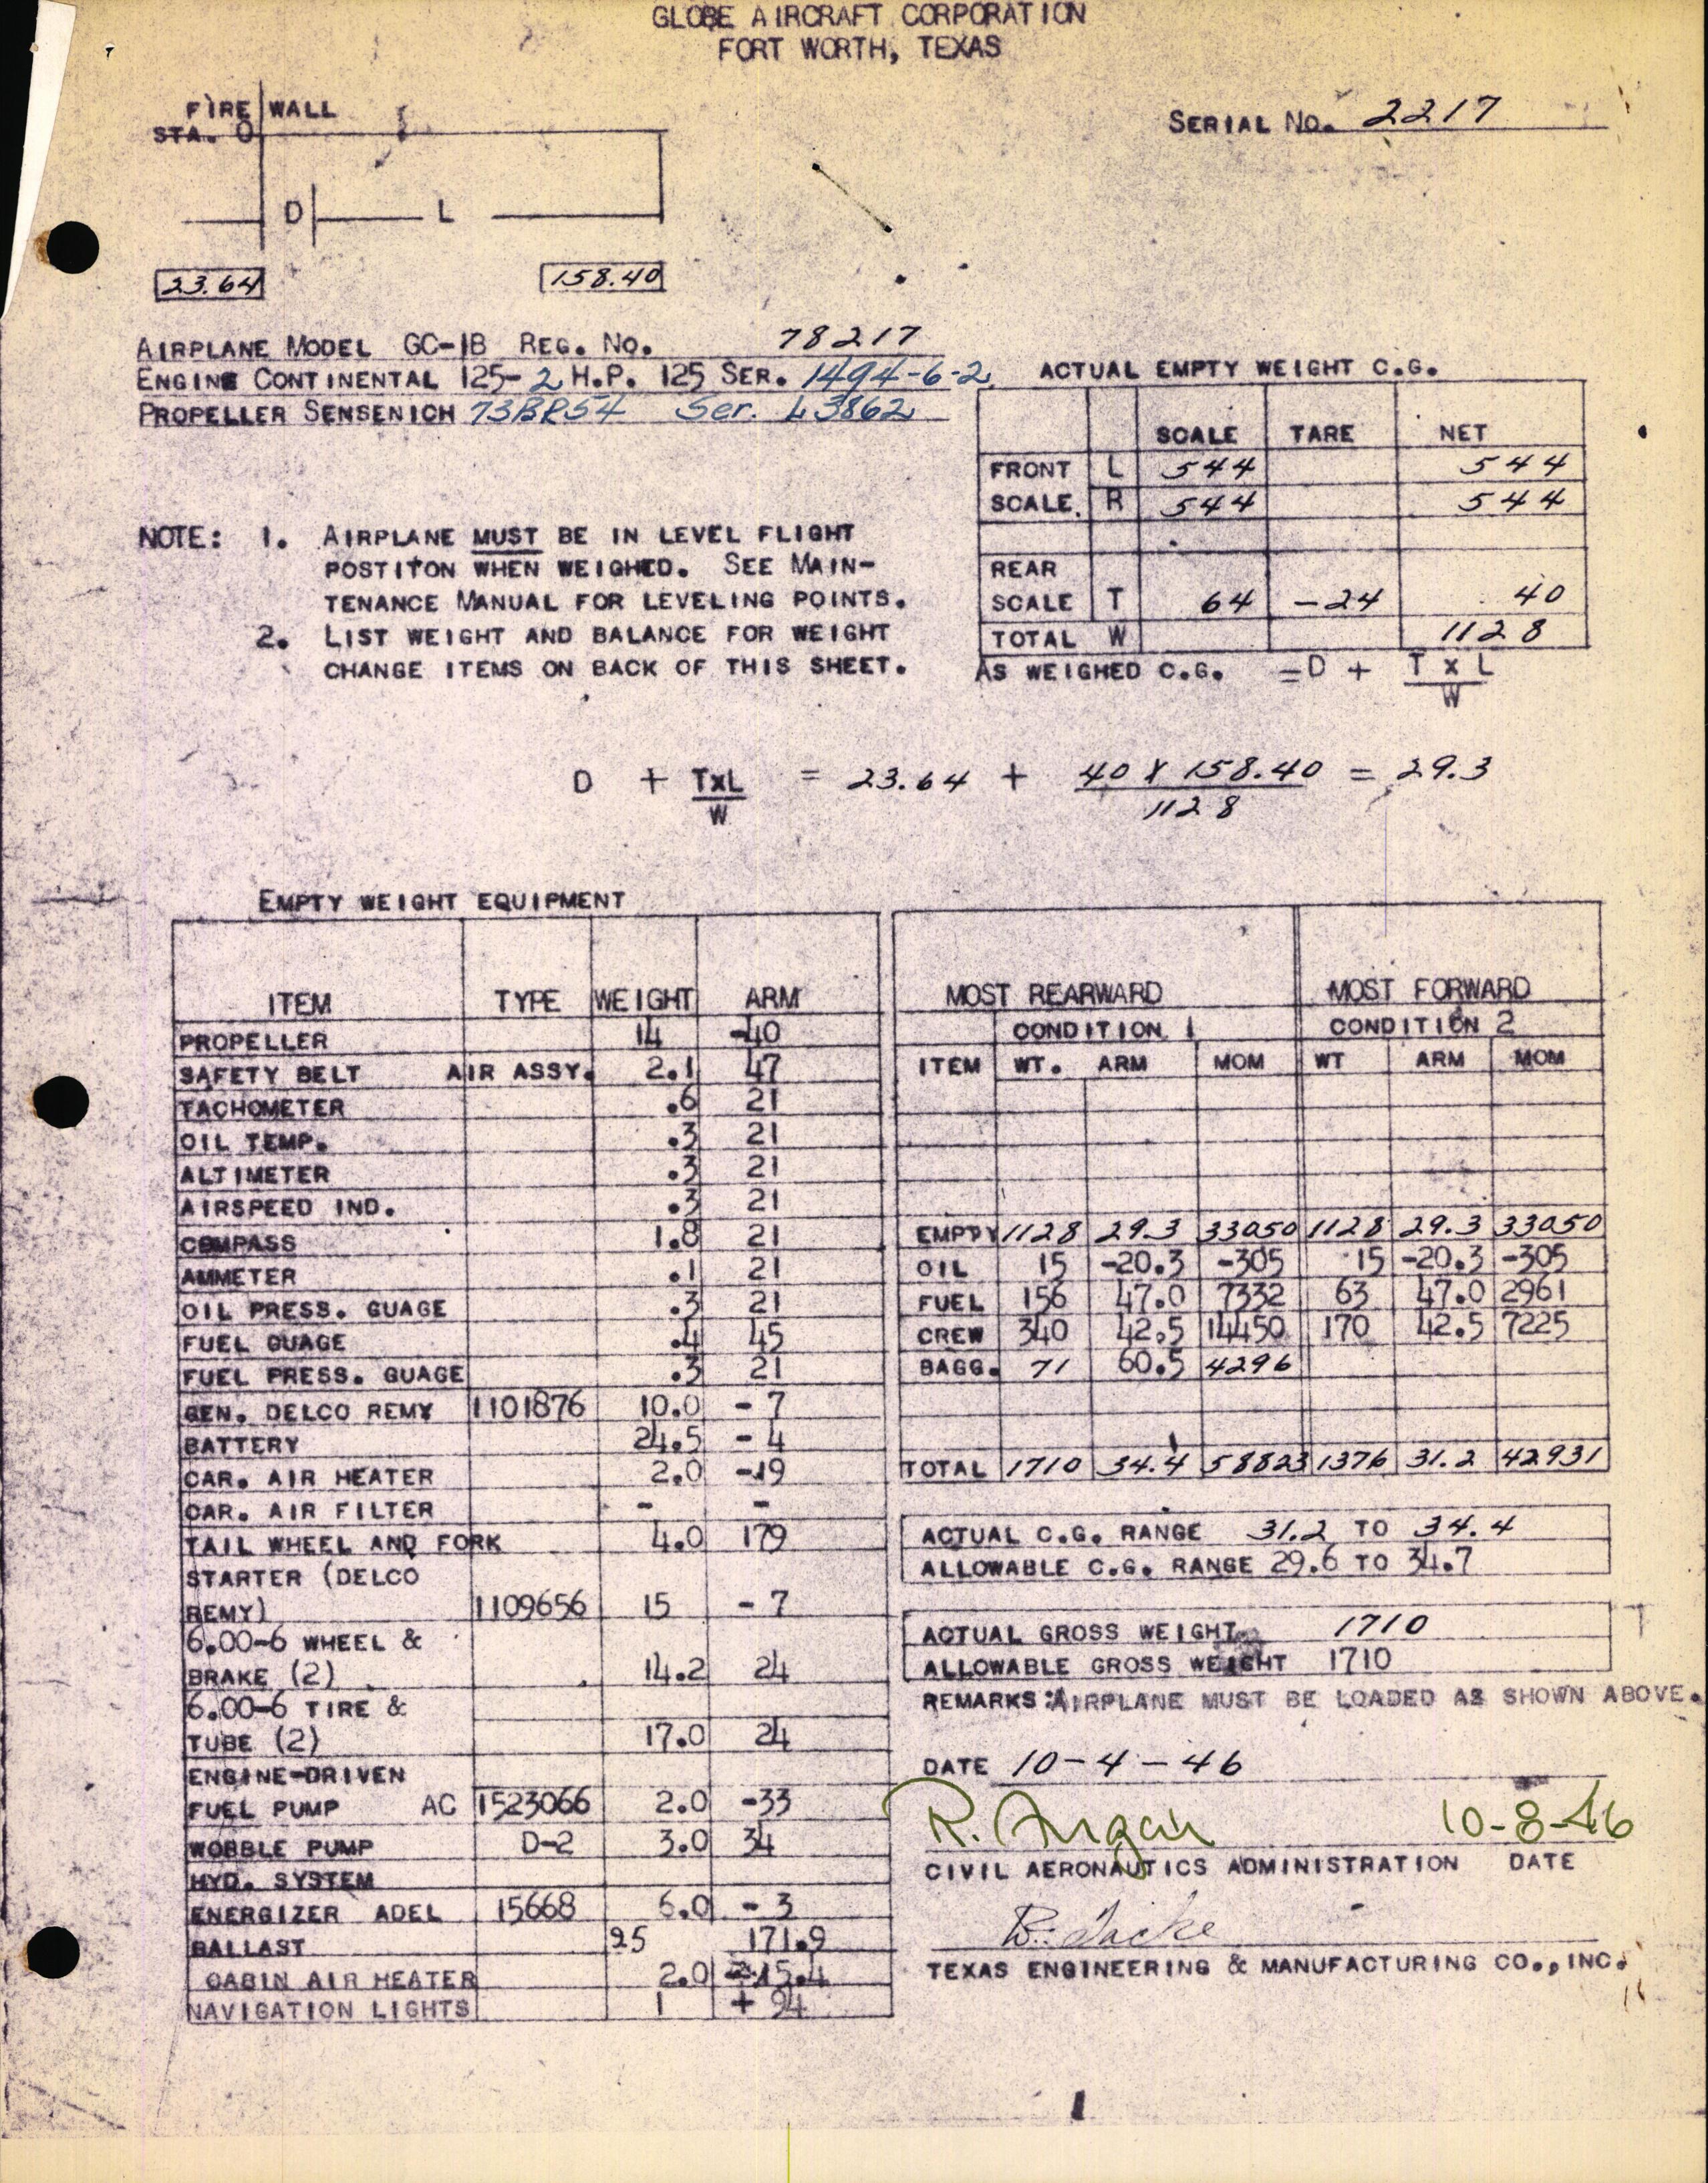 GLOBE AIRCRAFT CORPORATION
FORT WORTH, TEXAS
FIRE WALL
STA. O
SERIAL NO. 2217
D L
23.64 158.40
AIRPLANE MODEL GC-1B REG. NO. 78217
ENGINE CONTINENTAL 125-2 H.P. 125 SER. 1494-6-2
PROPELLER SENSENICH 73BR54 Ser. L3862
ACTUAL EMPTY WEIGHT C.G.
SCALE TARE NET
FRONT L 544 544
SCALE. R 544 544
REAR
SCALE T 64 -24 40
TOTAL W 1128
AS WEIGHED C.G. =D + T x L
W
NOTE: 1. AIRPLANE MUST BE IN LEVEL FLIGHT
POSTITON WHEN WEIGHED. SEE MAIN-
TENANCE MANUAL FOR LEVELING POINTS.
2. LIST WEIGHT AND BALANCE FOR WEIGHT
CHANGE ITEMS ON BACK OF THIS SHEET.
D + TxL = 23.64 + 40 X 158.40 = 29.3
W 1128
EMPTY WEIGHT EQUIPMENT
ITEM TYPE WEIGHT ARM
PROPELLER 14 -40
SAFETY BELT AIR ASSY. 2.1 47
TACHOMETER .6 21
OIL TEMP. .3 21
ALTIMETER .3 21
AIRSPEED IND. .3 21
COMPASS 1.8 21
AMMETER .1 21
OIL PRESS. GUAGE .3 21
FUEL GUAGE .4 45
FUEL PRESS. GUAGE .3 21
GEN. DELCO REMY 1101876 10.0 - 7
BATTERY 24.5 - 4
CAR. AIR HEATER 2.0 -19
CAR. AIR FILTER - -
TAIL WHEEL AND FORK 4.0 179
STARTER (DELCO
REMY) 1109656 15 - 7
6.00-6 WHEEL &
BRAKE (2) 14.2 24
6.00-6 TIRE &
TUBE (2) 17.0 24
ENGINE-DRIVEN
FUEL PUMP AC 1523066 2.0 -33
WOBBLE PUMP D-2 3.0 34
HYD. SYSTEM
ENERGIZER ADEL 15668 6.0 - 3
BALLAST 25 171.9
CABIN AIR HEATER 2.0 15.4
NAVIGATION LIGHTS 1 + 94
MOST REARWARD MOST FORWARD
CONDITION 1 CONDITION 2
ITEM WT. ARM MOM WT ARM MOM
EMPTY 1128 29.3 33050 1128 29.3 33050
OIL 15 -20.3 -305 15 -20.3 -305
FUEL 156 47.0 7332 63 47.0 2961
CREW 340 42.5 14450 170 42.5 7225
BAGG. 71 60.5 4296
TOTAL 1710 34.4 58823 1376 31.2 42931
ACTUAL C.G. RANGE 31.2 TO 34.4
ALLOWABLE C.G. RANGE 29.6 TO 34.7
ACTUAL GROSS WEIGHT 1710
ALLOWABLE GROSS WEIGHT 1710
REMARKS: AIRPLANE MUST BE LOADED AS SHOWN ABOVE.
DATE 10-4-46
R. 10-8-46
CIVIL AERONAUTICS ADMINISTRATION DATE
TEXAS ENGINEERING & MANUFACTURING CO., INC.